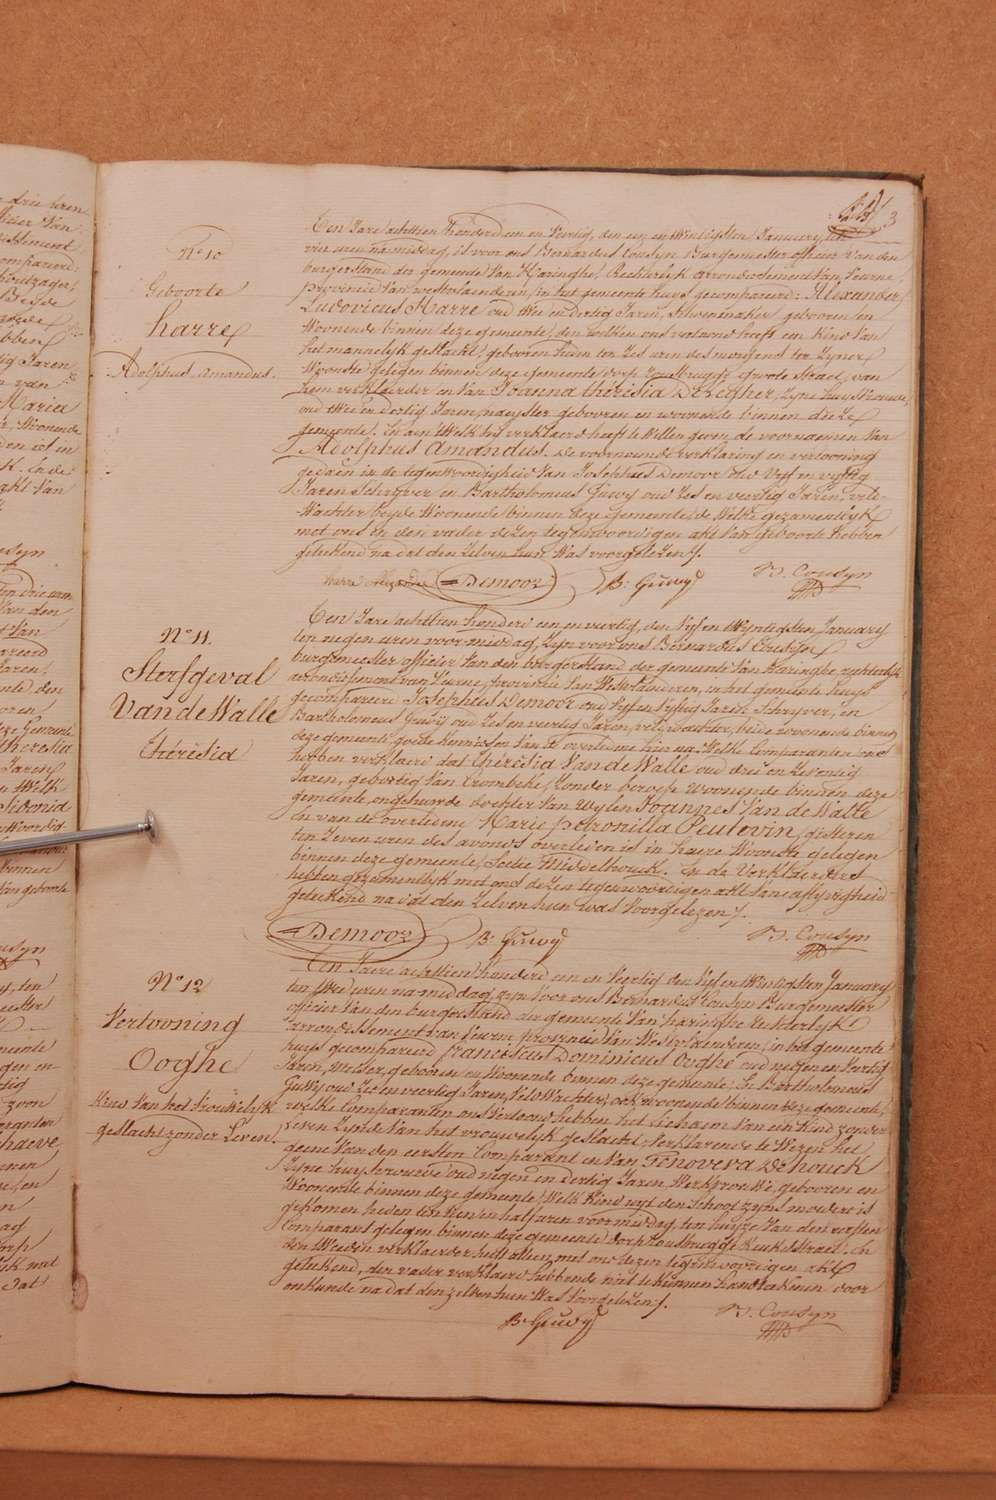 3
N° 10
Geboorte
harre
Adolphus amandus.
Ten Jare achttien honderd een en veertig, den een en twintigsten January ten
vier uren na middag, is voor ons Bernardus Cousyn Burgemeester officier van den
burgerstand der gemeente Van Haringhe, Rechterlyk arrondissement van Veurne,
provincie Van westvlaenderen, in het gemeente huys gecompareerd: Alexander
Ludovicus Harre oud twee en dertig Jaren, Schoenmaker gebooren en
Woonende binnen deze gemeente, den welken ons vertoond heeft een kind Van
het mannelyk geslacht, gebooren heden ten zes uren des morgens ten zyne
Woonste gelegen binnen deze gemeente dorp Rousbrugge groote Straet, van
hem verklaerder en Van Joanna thérésia Delegher, zyne huysvrouwe,
oud twee en dertig Jaren, naeyster gebooren en woonende binnen deze
gemeente. En aen Welk hy verklaerd heeft te Willen geven de voornaemen Van
Adolphus Amandus. De voornoemde verklaring en vertooning
gedaen in de tegenwoordigheid Van Josephus Demoor oud Vyf en vyftig
Jaren Schryver en Bartholomeus Guwy oud Zes en veertig Jaren, veld-
Wachter beyde Woonende binnen deze gemeente, de Welke gezamentlyk
met ons en den vader dezen tegenwoordigen akt Van geboorte hebben
geteekend na dat den Zelven hun Was voorgelezen /.
harre Alexander Demoor B: Guwy B. Cousyn
N° 11.
Sterfgeval
Van de Walle
thérésia
Ten Jare achttien honderd een en veertig, den Vyf en twyntigsten January
ten negen uren voormiddag, Zyn voor ons Bernardus Cousyn
burgemeester officier Van den burgerstand der gemeente Van Haringhe, rechterlyk
arrondissement van Veurne, provincie Van Westvlaenderen, in het gemeente huys
gecompareerd Josephus Demoor oud Vyf en Vyftig Jaren Schryver, en
Bartholomeus Guwy oud Zes en veertig Jaren, veldwachter, beide woonende binnen
deze gemeente goede kennissen Van de overledene hier na. Welke Comparanten ons
hebben verklaerd dat thérésia Van de Walle oud drie en Zeventig
Jaren, geboortig Van Crombeke, Zonder beroep woonende binnen deze
gemeente, ongehuwde dochter Van Wylen Joannes Van de Walle
en van de overledene Marie petronilla Peutevin, gisteren
ten Zeven uren des avonds overleden is in haere Woonste gelegen
binnen deze gemeente, Sectie Middelhouck. En de Verklaerders
hebben gezamentlyk met ons dezen tegenwoordigen akt Van aflyvigheid
geteekend na dat den Zelven hun was Voorgelezen /.
Demoor B: Guwy B. Cousyn
N° 12
Vertooning
Ooghe
Kind Van het Vrouwelyk
geslacht zonder Leven.
Ten Jaere achttien honderd een en Veertig den Vyf en twintigsten January
ten twee uren na middag, zyn voor ons Bernardus Cousyn Burgemeester
officier Van den burgerstand der gemeente Van haringhe Rechterlyk
arrondissement van Veurne provincie Van Westvlaenderen, in het gemeente
huys gecompareerd franciscus Dominicus Ooghe oud negen en Veertig
Jaren, Wever, gebooren en Woonende binnen deze gemeente, En Bartholomeus
Guwy oud Zes en veertig Jaren, Veld Wachter, ook woonende binnen deze gemeente,
welke Comparanten ons Vertoond hebben het lichaem Van een Kind zonder
leven Zynde Van het vrouwelyk geslacht. Verklarende te Wezen het
geene Van den eersten Comparant en Van Genoveva Dehouck
Zyne huysvrouwe oud negen en dertig Jaren Werkvrouwe, gebooren en
Woonende binnen deze gemeente, Welk Kind uyt den Schoot zyns moeders is
gekomen heden ten tien en half uren voormiddag, ten huyze Van den eersten
Comparant gelegen binnen deze gemeente, dorp Rousbrugge Kerke Straet. En
den tweeden verklaerder heeft alleen met ons dezen tegenwoordigen akt
geteekend, den vader verklaerd hebbende niet te kunnen handtekenen voor
onkunde na dat den zelven hun Was Voorgelezen /.
B: Guwy B. Cousyn